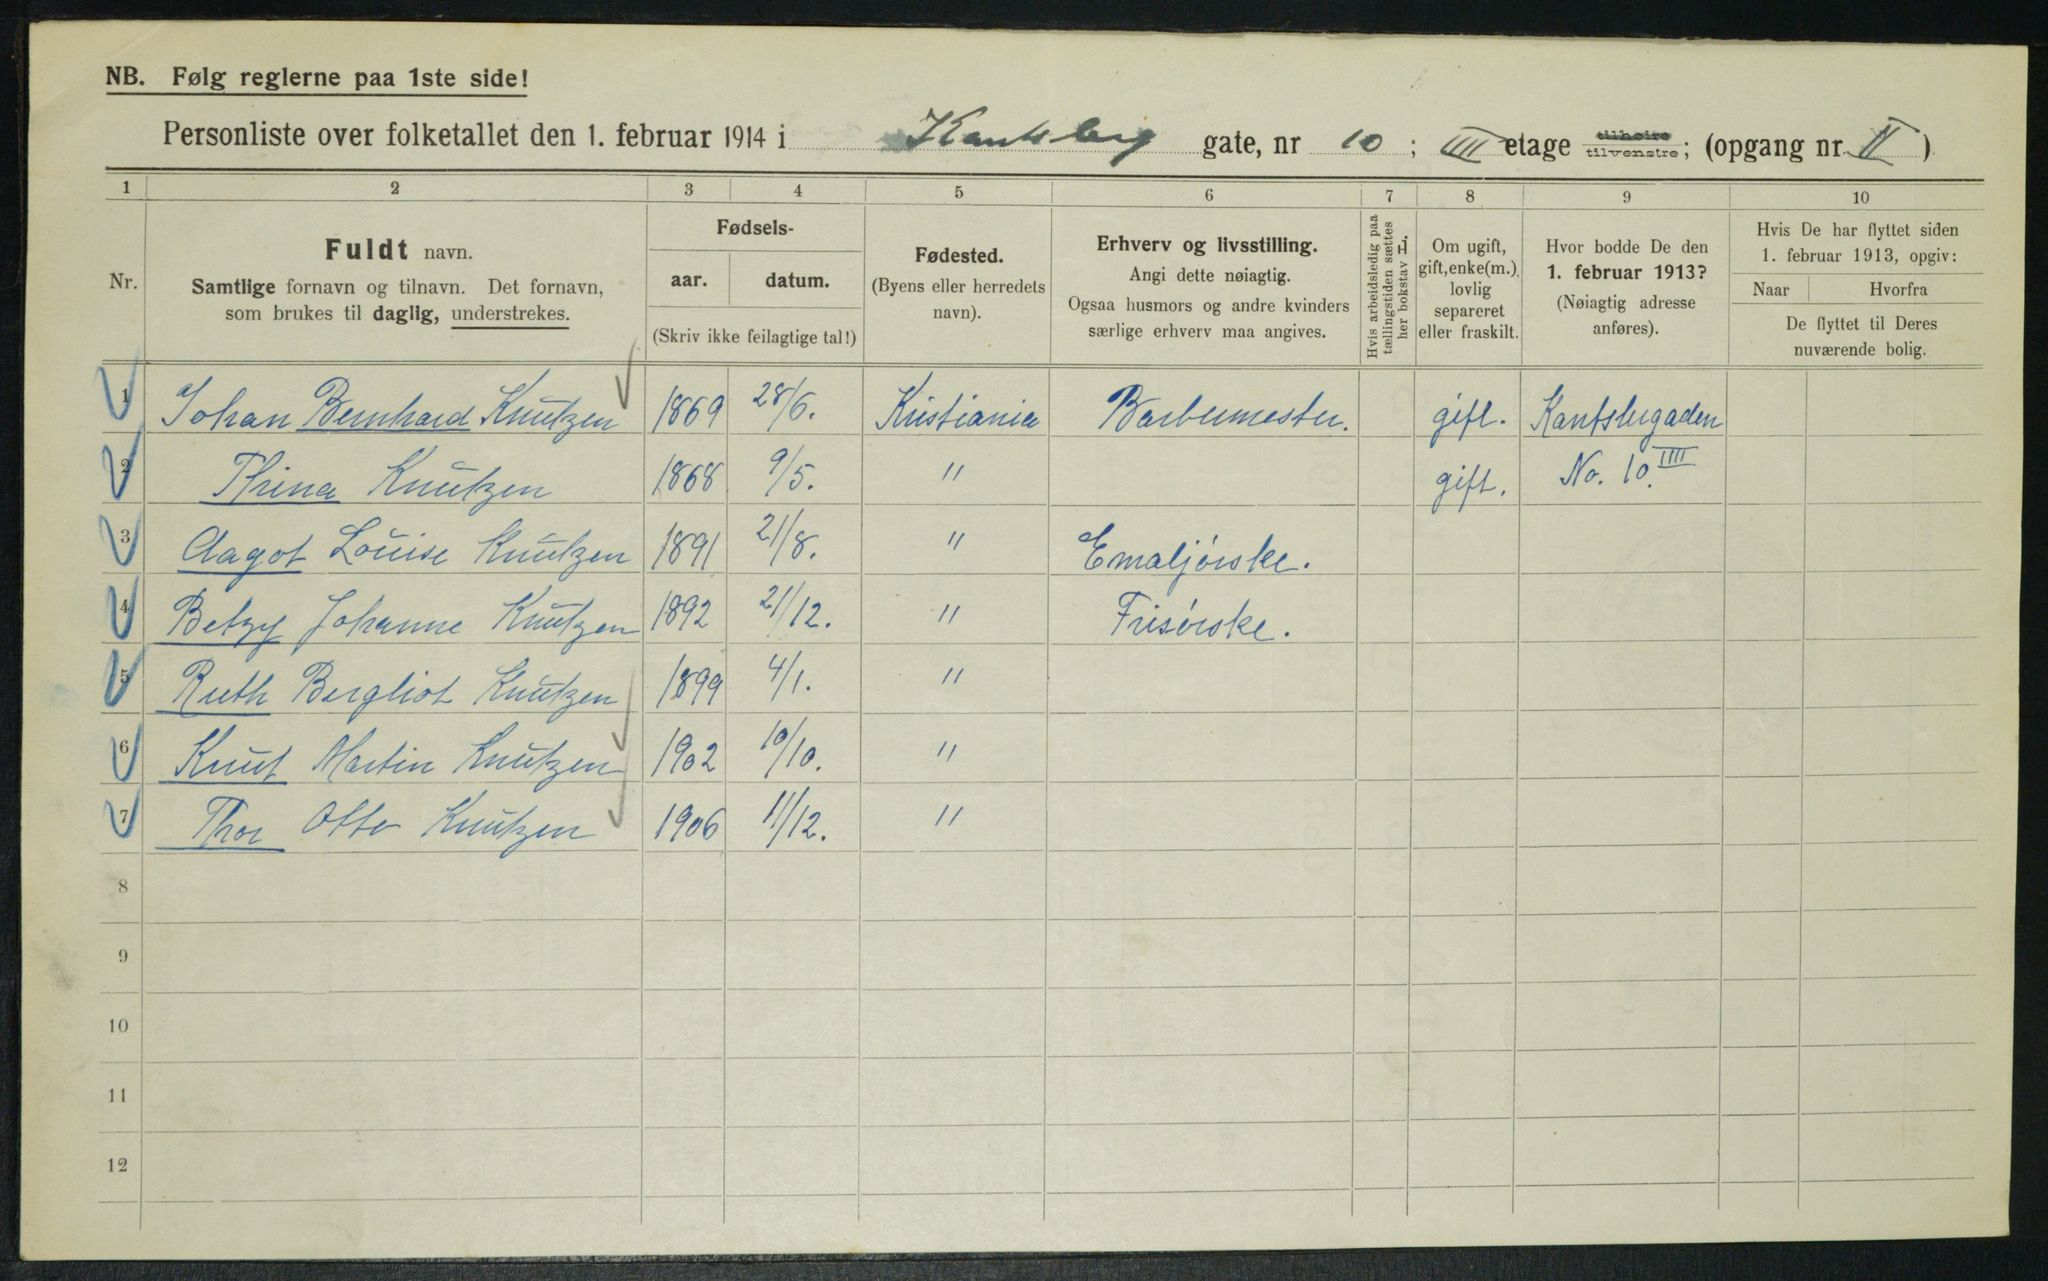 NB. Følg reglerne paa 1ste side!
Personliste over folketallet den 1. februar 1914 i Kantsberg gate, nr 10 ; IIII etage tilhøire tilvenstre; (opgang nr. II )
1 2 3 4 5 6 7 8 9 10
Nr.
Fuldt navn.
Samtlige fornavn og tilnavn. Det fornavn,
som brukes til daglig, understrekes.
Fødsels-
aar. datum.
(Skriv ikke feilagtige tal!)
Fødested.
(Byens eller herredets
navn).
Erhverv og livsstilling.
Angi dette nøiagtig.
Ogsaa husmors og andre kvinders
særlige erhverv maa angives.
Hvis arbeidsledig paa
tællingstiden sættes
her bokstav L.
Om ugift,
gift, enke(m.),
lovlig
separeret
eller fraskilt.
Hvor bodde De den
1. februar 1913?
(Nøiagtig adresse
anføres).
Hvis De har flyttet siden
1. februar 1913, opgiv:
Naar Hvorfra
De flyttet til Deres
nuværende bolig.
1 Johan Bernhard Knutzen 1869 28/6. Kristiania Barbermester. gift. Kantsbergaden
2 Thina Knutzen 1868 9/5. " gift. No. 10 IIII
3 Aagot Louise Knutzen 1891 21/8. " Emaljørske.
4 Betzy Johanne Knutzen 1892 21/12. " Frisørske.
5 Ruth Bergliot Knutzen 1899 4/1. "
6 Knut Martin Knutzen 1902 10/10. "
7 Thor Otto Knutzen 1906 11/12. "
8
9
10
11
12